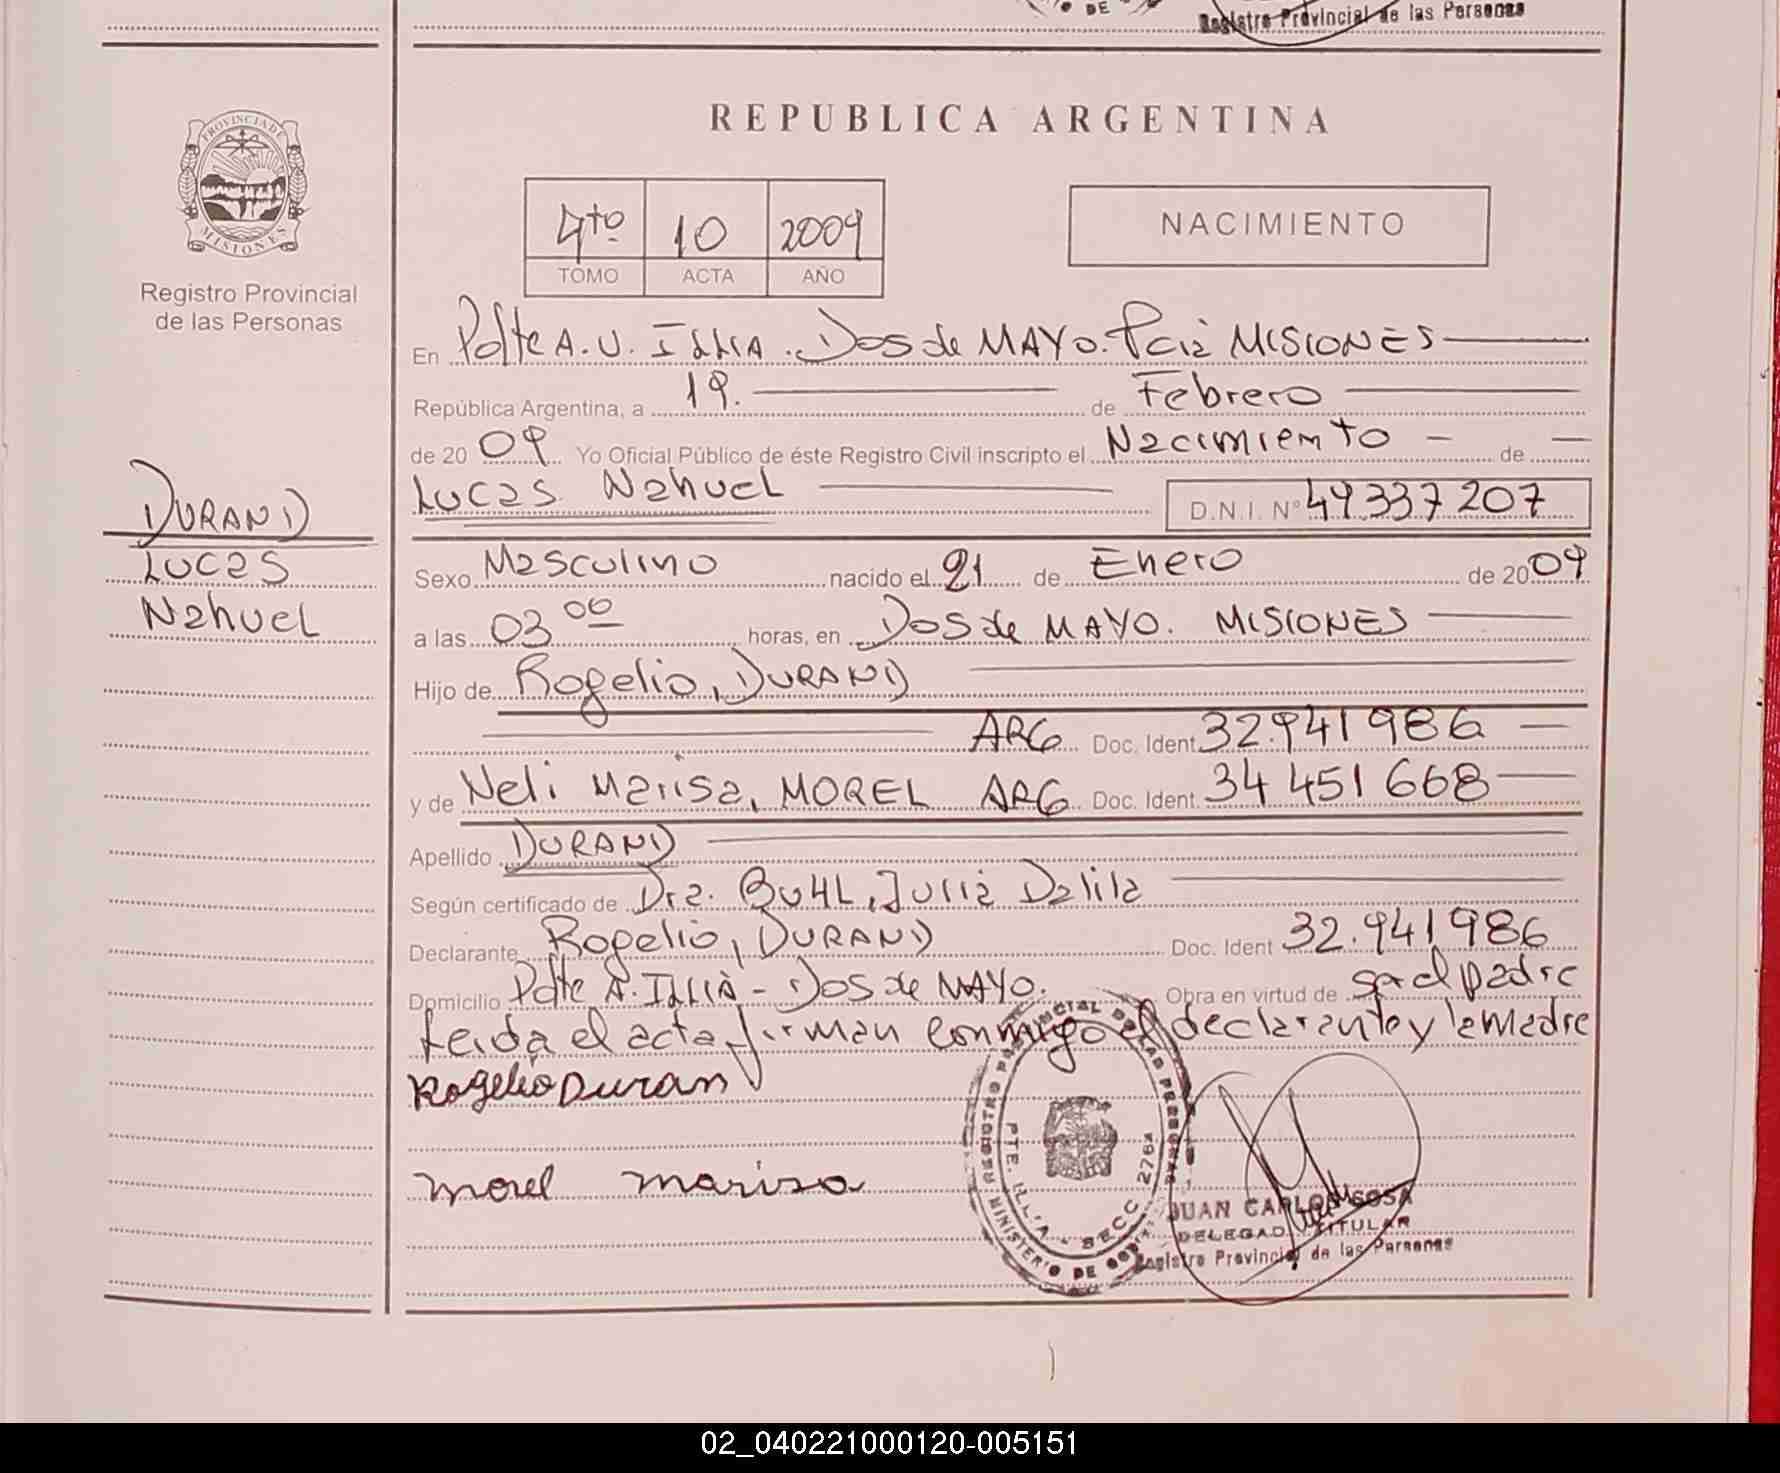 DE
Registro Provincial de las Personas
PROVINCIA DE
MISIONES
Registro Provincial
de las Personas
REPUBLICA ARGENTINA
4to 10 2009
TOMO ACTA AÑO
NACIMIENTO
En Pdte A. U. ILLIA. Dos de MAYO. Pcia MISIONES
República Argentina, a 19. de Febrero
de 2009 Yo Oficial Público de éste Registro Civil inscripto el Nacimiento - de -
Lucas Nahuel D.N.I. N° 49337207
DURAND
Lucas
Nahuel
Sexo Masculino nacido el 21 de Enero de 2009
a las 03 00 horas, en Dos de MAYO. MISIONES
Hijo de Rogelio, DURAND
ARG Doc. Ident. 32.941986
y de Neli Marisa, MOREL ARG Doc. Ident. 34 451 668
Apellido DURAND
Según certificado de Dra. BUHL, Julia Dalila
Declarante Rogelio, DURAND Doc. Ident 32.941986
Domicilio Pdte A. ILLIA - Dos de MAYO. Obra en virtud de ser el padre
Leida el acta firman conmigo el declarante y la madre
Rogelio Duran
morel marisa
REGISTRO PROVINCIAL DE LAS PERSONAS
PTE. ILLIA - SECC. 2764
MINISTERIO DE GOB
JUAN CARLOS SOSA
DELEGADO TITULAR
Registro Provincial de las Personas
02_040221000120-005151